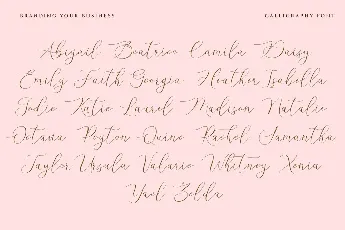 BRANDING YOUR BUSINESS CALLIGRAPHY FONT
Abigail Beatrice Camila Daisy
Emily Faith Georgia Heather Isabella
Jodie Katie Laurel Madison Natalie
Octavia Peyton Quinc Rachel Samantha
Taylor Ursula Valarie Whitney Xenia
Yael Zelda